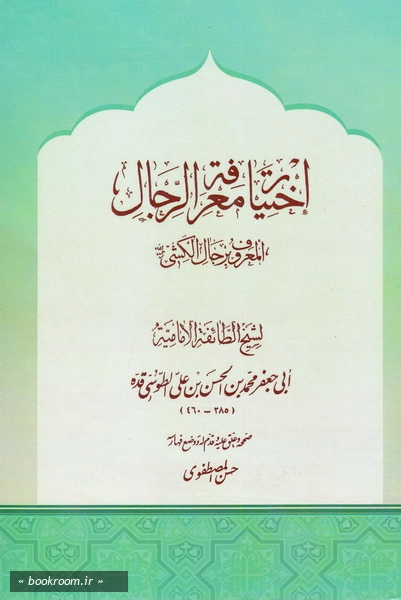 إختيار معرفة الرجال
المعروف برجال الكشي
لشيخ الطائفة الإمامية
أبي جعفر محمد بن الحسن بن علي الطوسي قده
(٣٨٥ - ٤٦٠)
صححه وعلق عليه وقدم له ووضع فهارسه
حسن المصطفوي
« bookroom.ir »